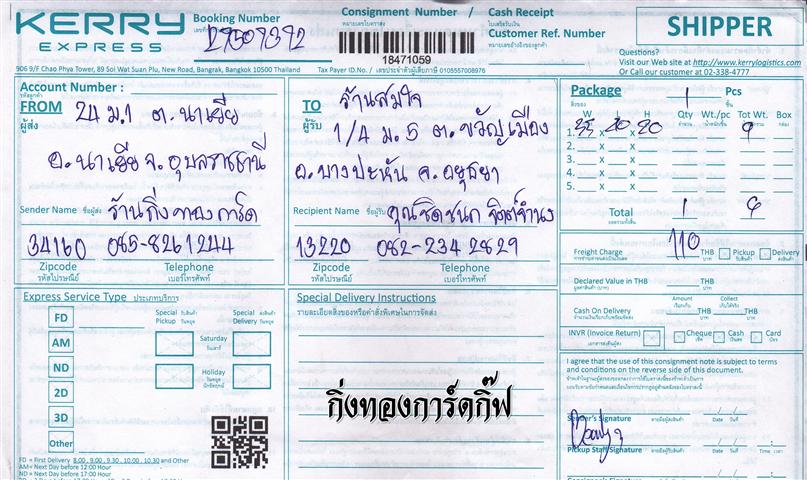 KERRY EXPRESS
Booking Number
Consignment Number / หมายเลขใบตราส่ง
18471059
Cash Receipt ใบเสร็จรับเงิน
Customer Ref. Number
หมายเลขอ้างอิงของลูกค้า
SHIPPER
Questions?
Visit our Web site at http://www.kerrylogistics.com
Or Call our customer at 02-338-4777
906 9/F Chao Phya Tower, 89 Soi Wat Suan Plu, New Road, Bangrak, Bangkok 10500 Thailand
Tax Payer ID.No. / เลขประจำตัวผู้เสียภาษี 0105557008976
Account Number :
รหัสลูกค้า
FROM ผู้ส่ง 24 ม.1 ต.นาเยีย
อ.นาเยีย จ.อุบลราชธานี
Sender Name ชื่อผู้ส่ง ร้านกิ่งทองการ์ด
34160 085-8261244
Zipcode Telephone
รหัสไปรษณีย์ เบอร์โทรศัพท์
TO ผู้รับ ร้านสมใจ
1/4 ม.5 ต.ขวัญเมือง
อ.บางปะหัน จ.อยุธยา
Recipient Name ชื่อผู้รับ คุณชิดชนก จิตต์จำนง
13220 082-234 2829
Zipcode Telephone
รหัสไปรษณีย์ เบอร์โทรศัพท์
Package สิ่งของ 1 Pcs ชิ้น
W L H Qty Wt./pc Tot Wt. Box
1. x 20 x 20 9
2. x x
3. x x
4. x x
5. x x
Total 1 9
Freight Charge 110 THB Pickup Delivery
Declared Value in THB THB
Amount Collect
Cash On Delivery THB THB
INVR (Invoice Return) Cheque Cash Card
I agree that the use of this consignment note is subject to terms
and conditions on the reverse side of this document.
Sender's Signature Date
Pickup Staff Signature Date Time
Express Service Type ประเภทบริการ
Special Pickup Special Delivery
FD
AM Saturday วันเสาร์
ND Holiday วันหยุดนักขัตฤกษ์
2D
3D
Other
FD = First Delivery 8.00 , 9.00 , 9.30 , 10.00 , 10.30 and Other
AM= Next Day before 12:00 Hour
ND = Next Day before 17:00 Hour
Special Delivery Instructions
รายละเอียดสิ่งของหรือคำสั่งพิเศษในการจัดส่ง
กิ่งทองการ์ดกิ๊ฟ